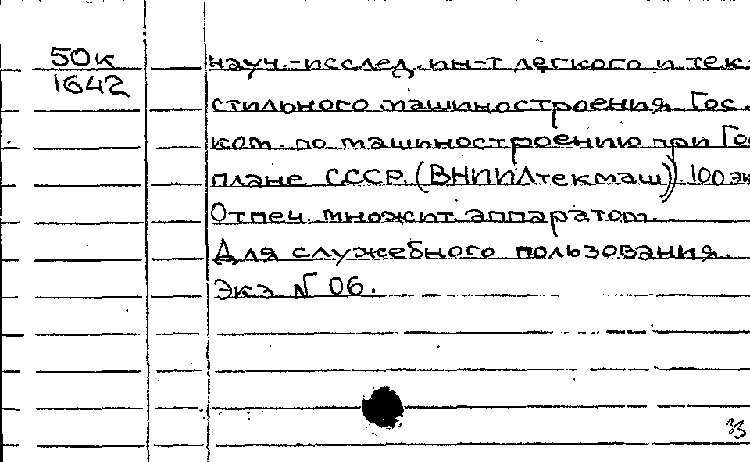 50к
1642
науч.-исслед. ин-т легкого и тек-
стильного машиностроения Гос.
ком. по машиностроению при Гос
плане СССР. (ВНИИЛтекмаш)). 100 эк
Отпеч. множит. аппаратом.
Для служебного пользования.
Экз № 06.
33